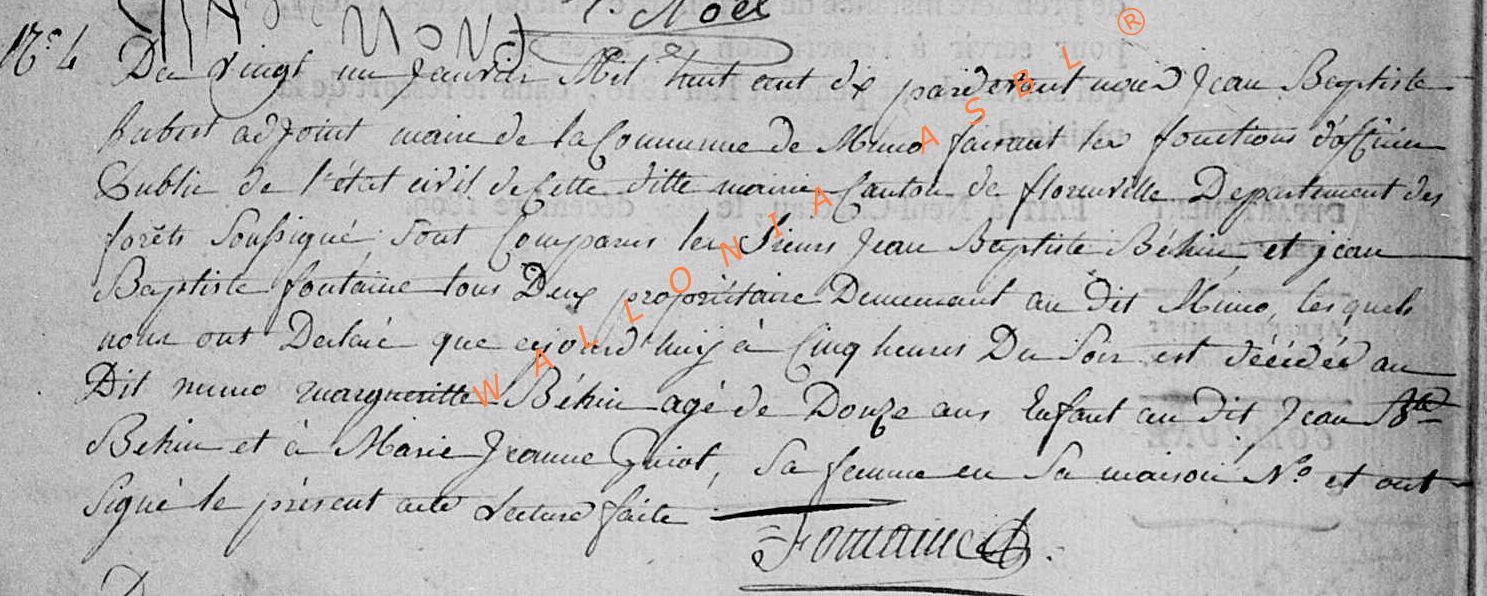 T. Noël
N.º 4
Du vingt un janvier Mil huit cent dix pardevant nous Jean Baptiste
hubert adjoint maire de la Commune de Muno faisant les fonctions d'officier
Public de l'état civil de Cette ditte mairie Canton de florenville Departement des
forêts soussigné sont Comparus les Sieurs Jean Baptiste Béhin et jean
Baptiste fontaine tous Deux propriétaire Demeurant au dit Muno, lesquels
nous ont Declaré que cejourd'huy à Cinq heures Du Soir est décédé au
Dit muno margueritte Béhin agé de Douze ans Enfant au dit Jean Bte
Behin et à Marie Jeanne Guiot, sa femme en sa maison Nº et ont
signé le présent acte Lecture faite
Fontaine
WALLONIA ASBL ®